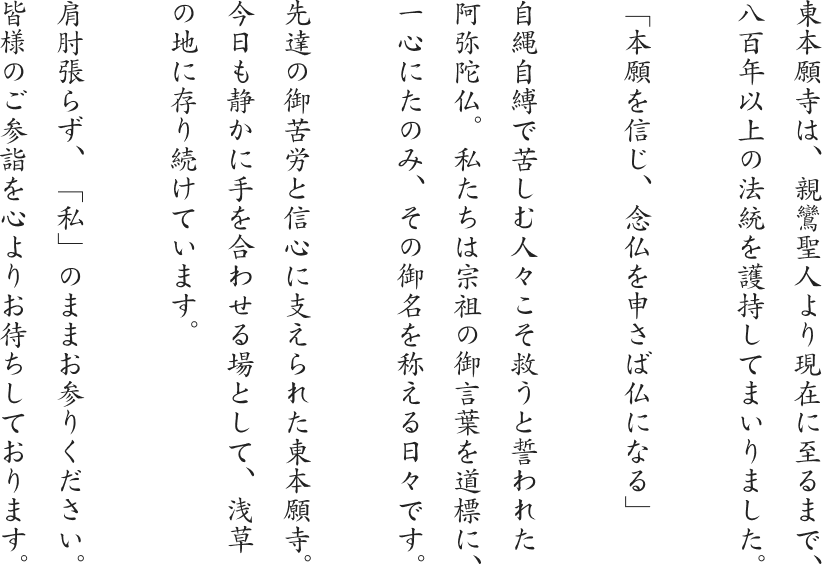 東本願寺は、親鸞聖人より現在に至るまで、
八百年以上の法統を護持してまいりました。
「本願を信じ、念仏を申さば仏になる」
自縄自縛で苦しむ人々こそ救うと誓われた
阿弥陀仏。私たちは宗祖の御言葉を道標に、
一心にたのみ、その御名を称える日々です。
先達の御苦労と信心に支えられた東本願寺。
今日も静かに手を合わせる場として、浅草
の地に存り続けています。
肩肘張らず、「私」のままお参りください。
皆様のご参詣を心よりお待ちしております。